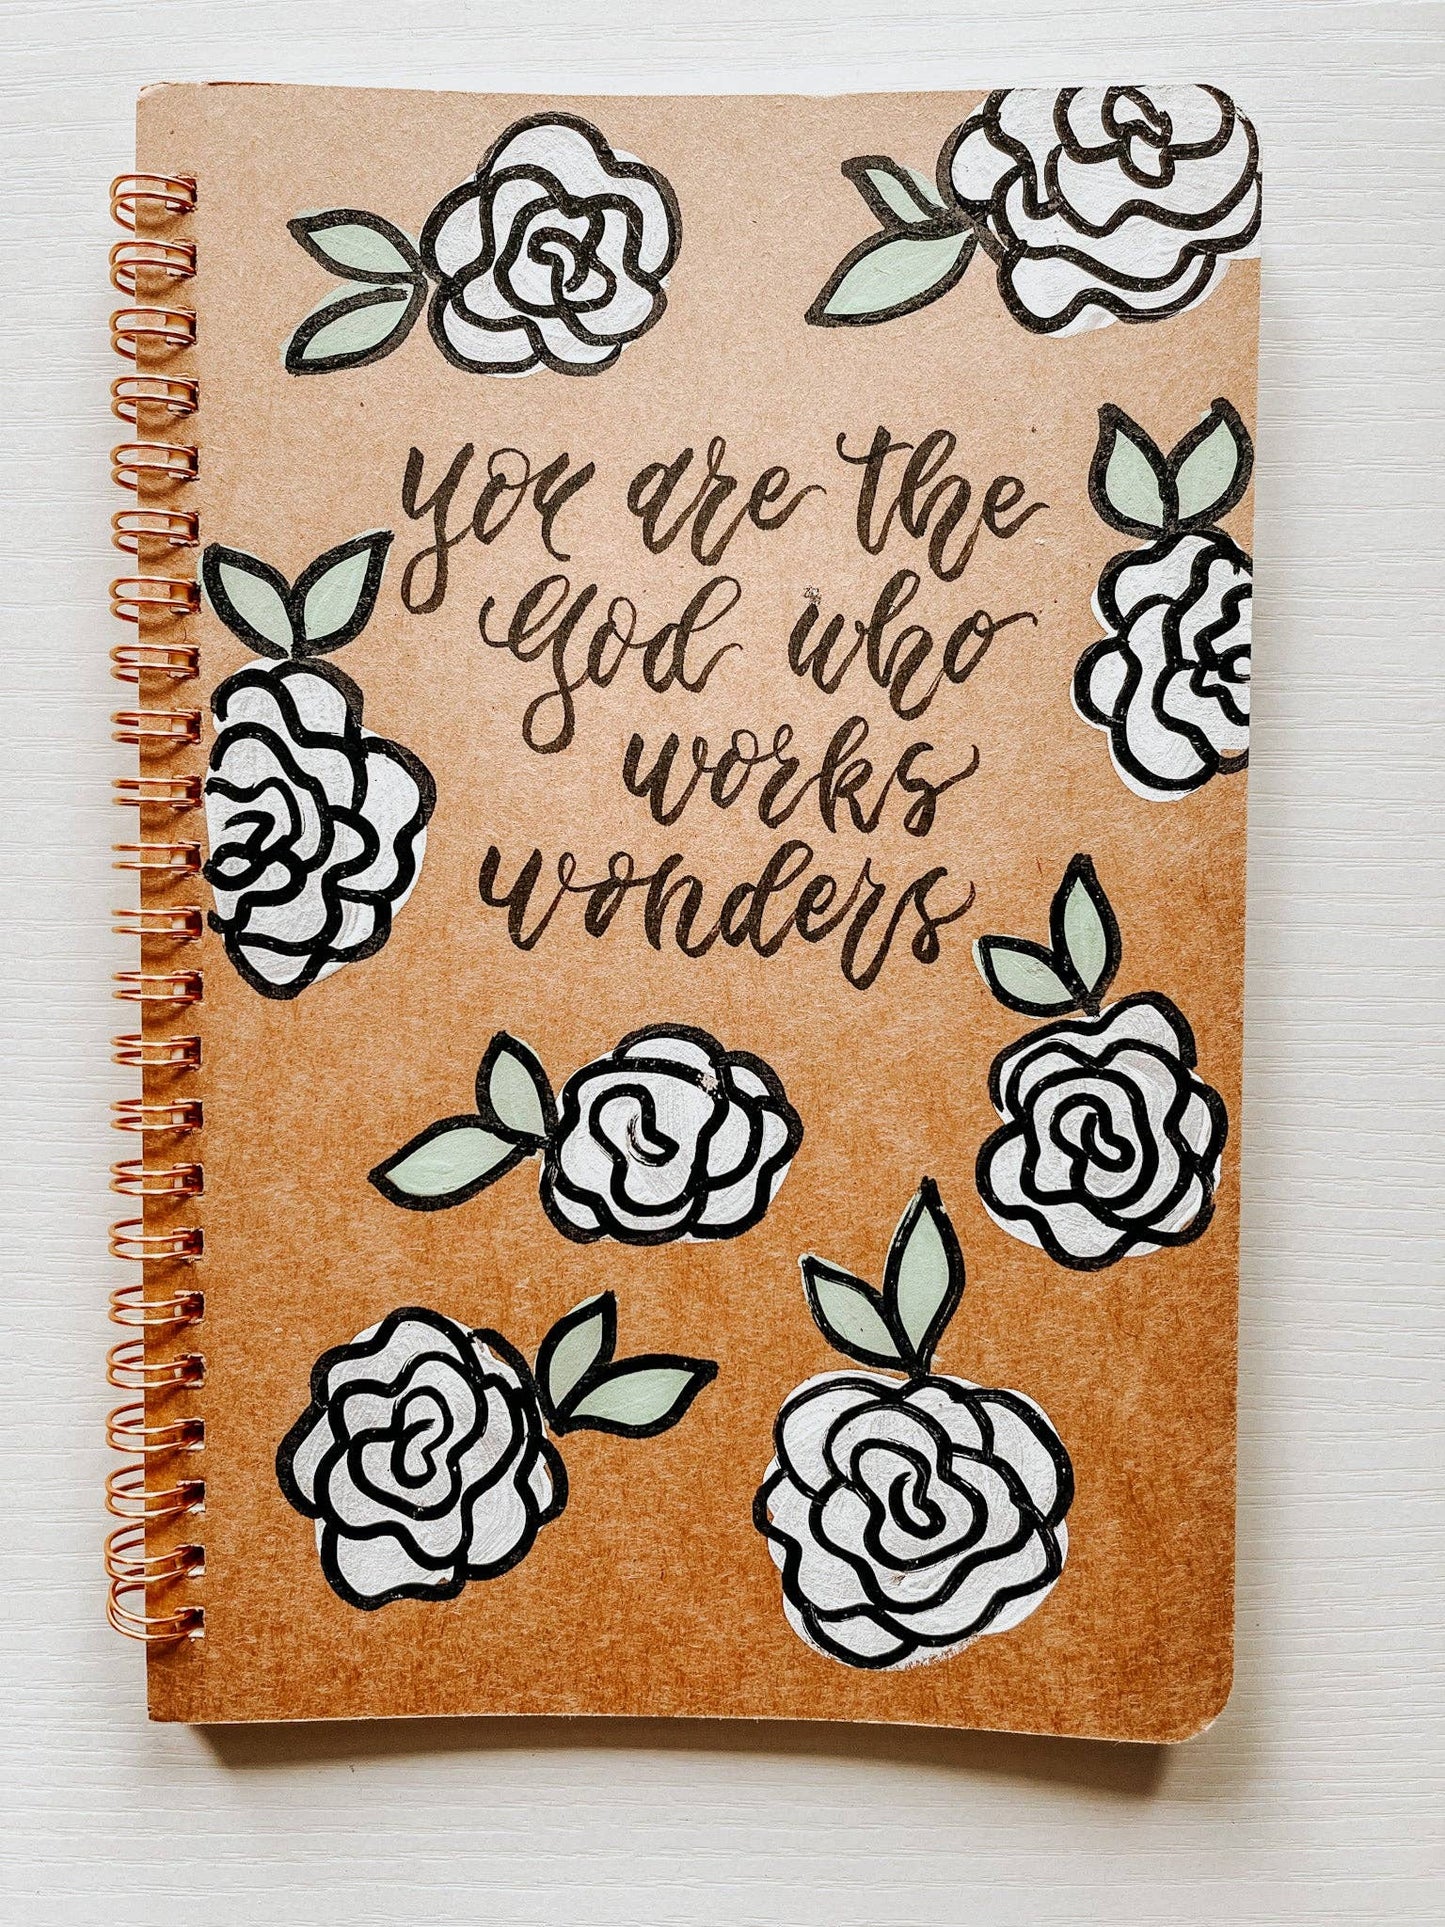 you are the
God who
works
wonders